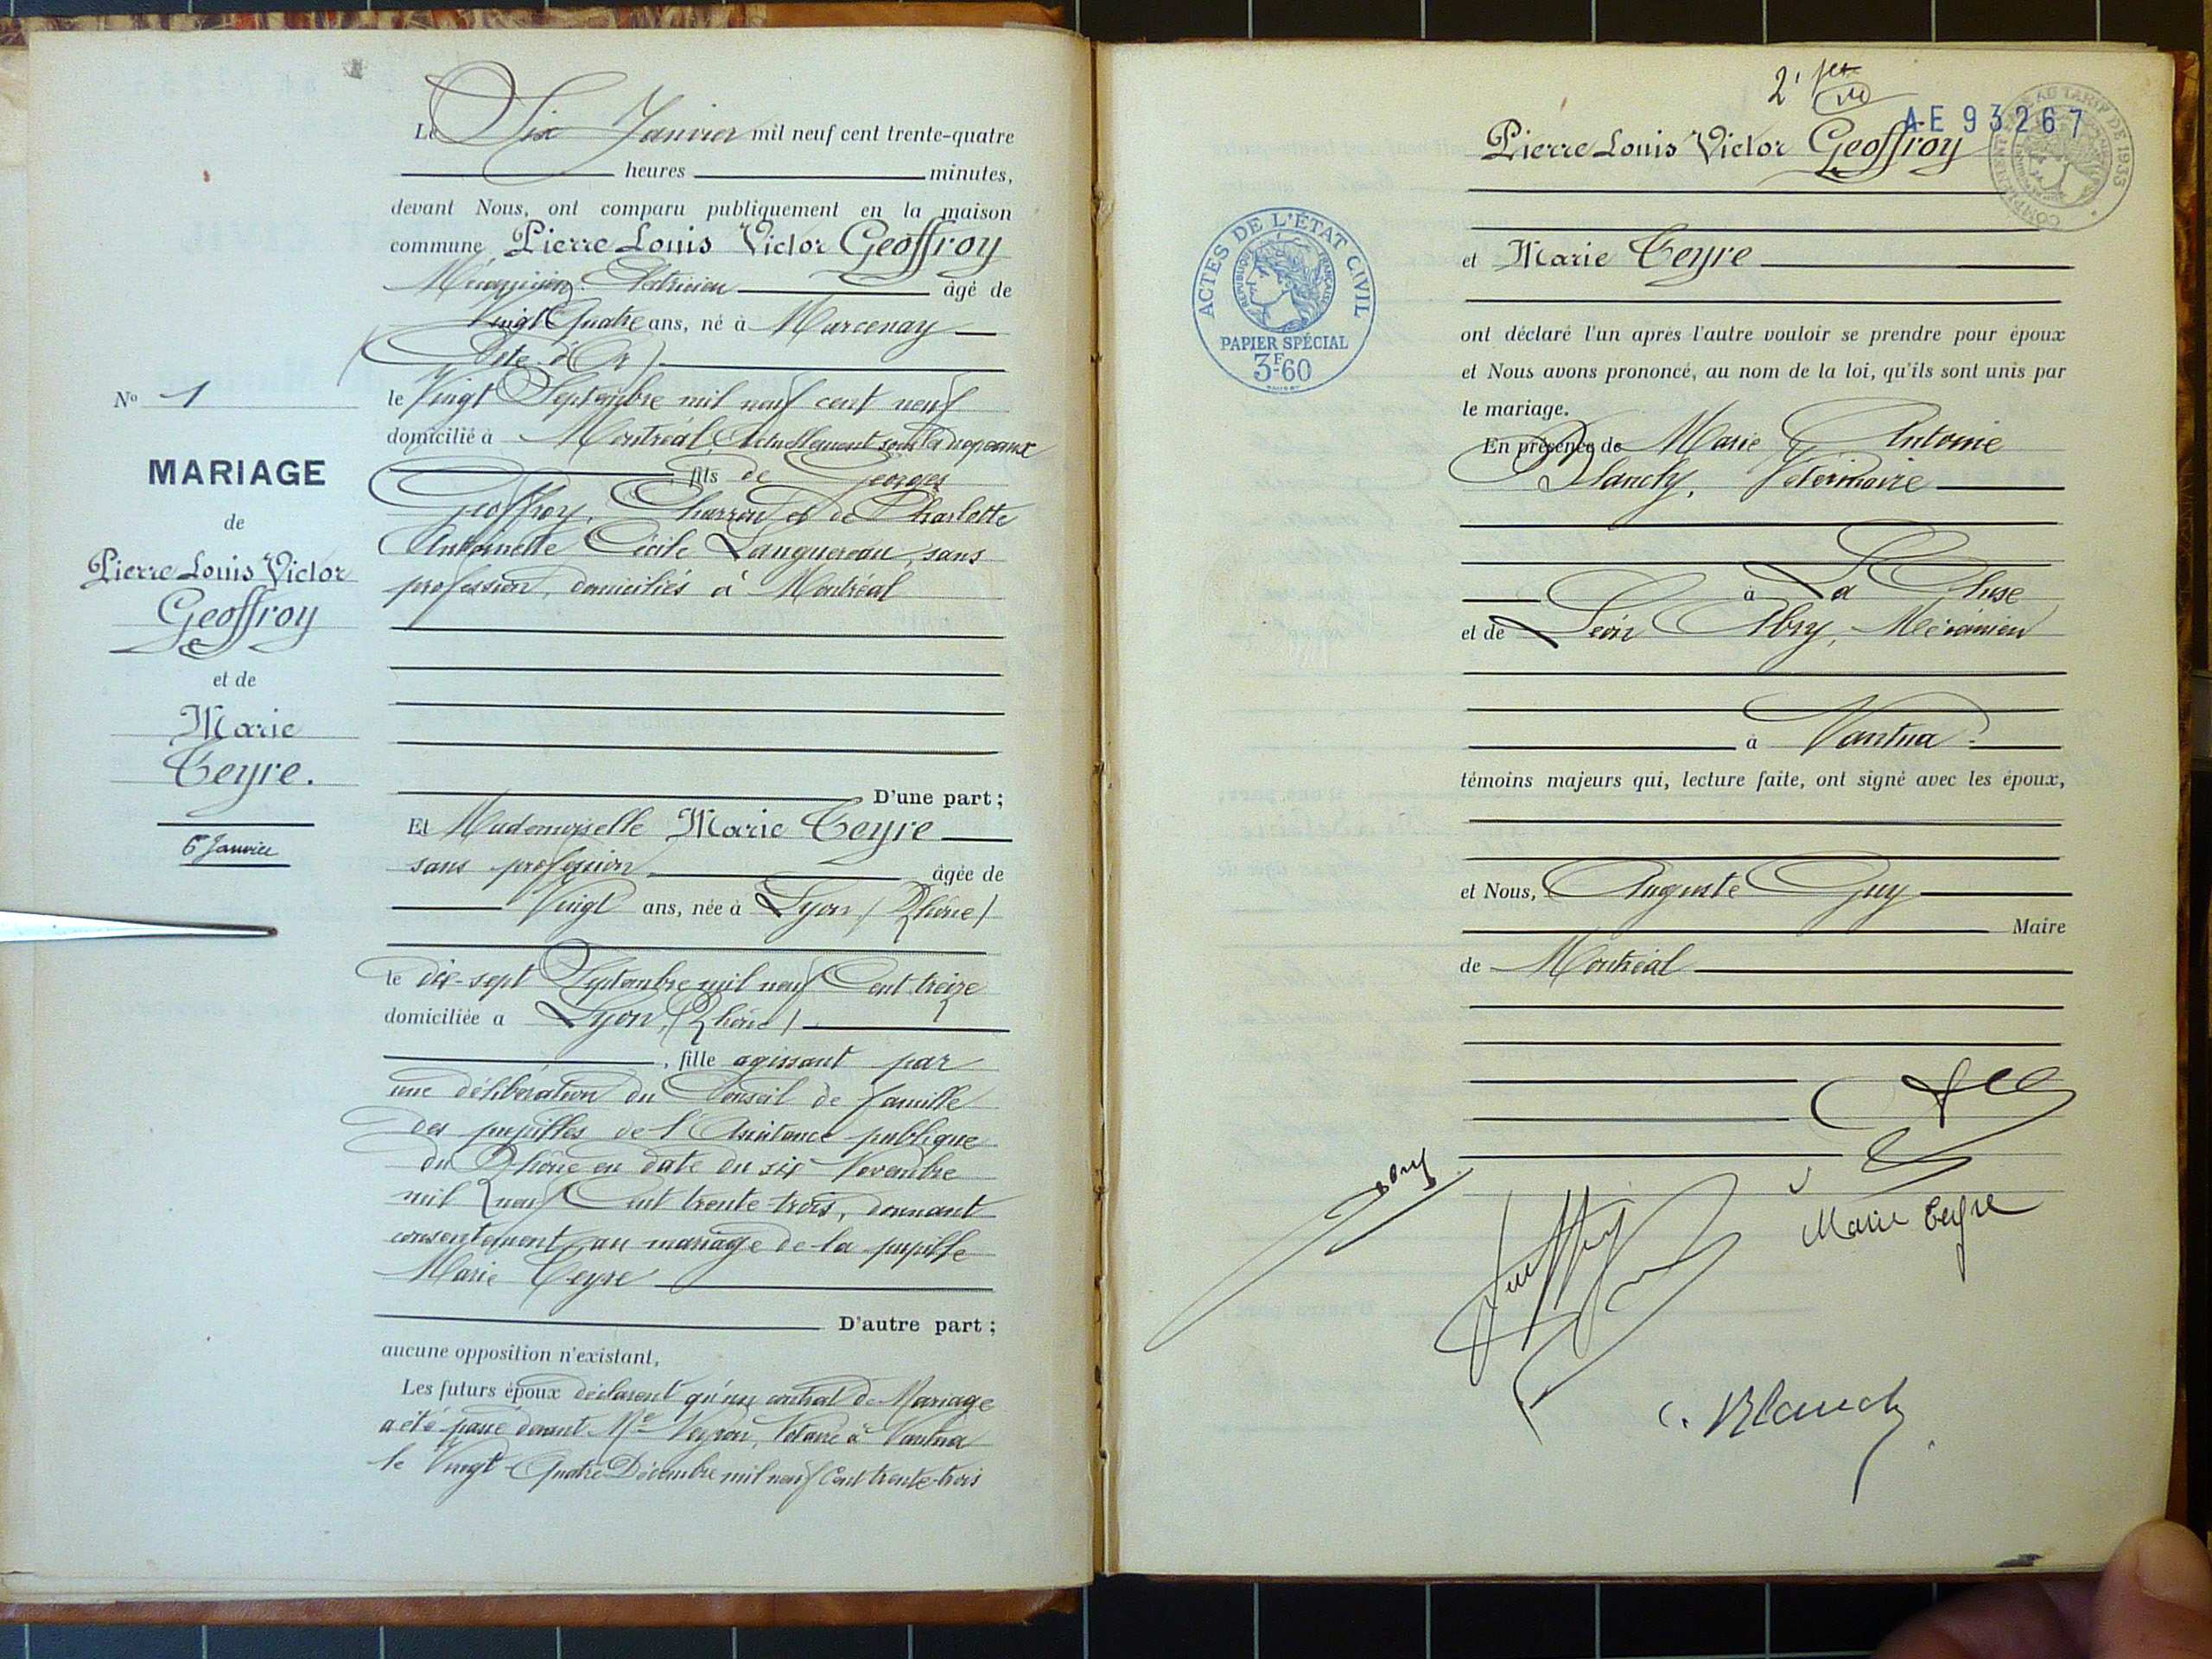 Le Six Janvier mil neuf cent trente-quatre
heures minutes,
devant Nous, ont comparu publiquement en la maison
commune Pierre Louis Victor Geoffroy
Mécanicien Electricien âgé de
Vingt Quatre ans, né à Marcenay
(Côte d'Or)
le Vingt Septembre mil neuf cent neuf
domicilié à Montréal, Actuellement sous les drapeaux
fils de Georges
Geoffroy, Charron et de Charlotte
Antoinette Cécile Languereau, sans
profession, domiciliés à Montréal
No 1
MARIAGE
de
Pierre Louis Victor
Geoffroy
et de
Marie
Ceyre.
6 Janvier
D'une part ;
Et Mademoiselle Marie Ceyre
sans profession âgée de
Vingt ans, née à Lyon (Rhône)
le dix-sept Septembre mil neuf Cent treize
domiciliée a Lyon, (Rhône)
, fille agissant par
une délibération du Conseil de famille
des pupilles de l'Assistance publique
du Rhône en date du six Novembre
mil neuf Cent trente-trois, donnant
consentement au mariage de la pupille
Marie Ceyre
D'autre part ;
aucune opposition n'existant,
Les futurs époux déclarent qu'un contrat de Mariage
a été passé devant Me Notaire à Nantua
le Vingt-Quatre Décembre mil neuf Cent trente-trois
AE 93267
Pierre Louis Victor Geoffroy
et Marie Ceyre
ACTES DE L'ÉTAT CIVIL
RÉPUBLIQUE FRANÇAISE
PAPIER SPÉCIAL
3F60
AU TARIF DE 1933
ont déclaré l'un après l'autre vouloir se prendre pour époux
et Nous avons prononcé, au nom de la loi, qu'ils sont unis par
le mariage.
En présence de Marie Antoine
Blanchy, Vétérinaire
à La Cluse
et de Léon Abry, Mécanicien
à Nantua
témoins majeurs qui, lecture faite, ont signé avec les époux,
et Nous, Auguste Guy
Maire
de Montréal
Abry
Geoffroy
Marie Ceyre
C. Blanchy